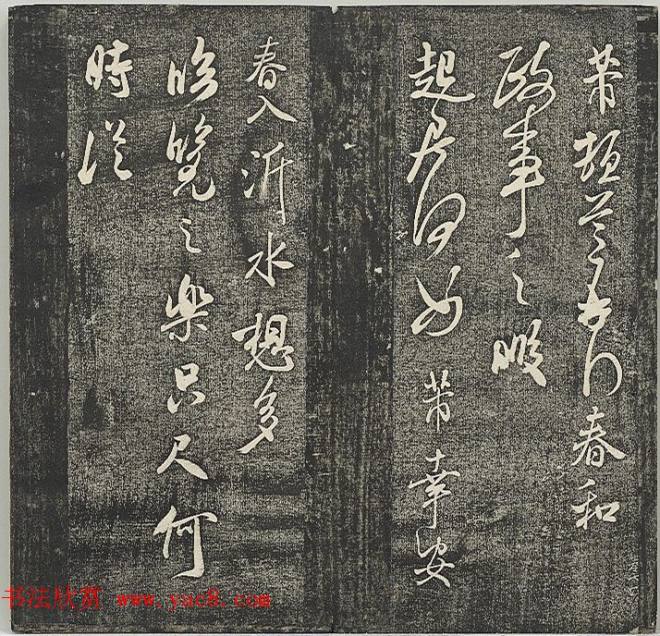 芾春和
政事之暇
起居何如芾幸安
春入沂水想多
臨覽之樂只尺何
時從
书法欣赏 www.yac8.com